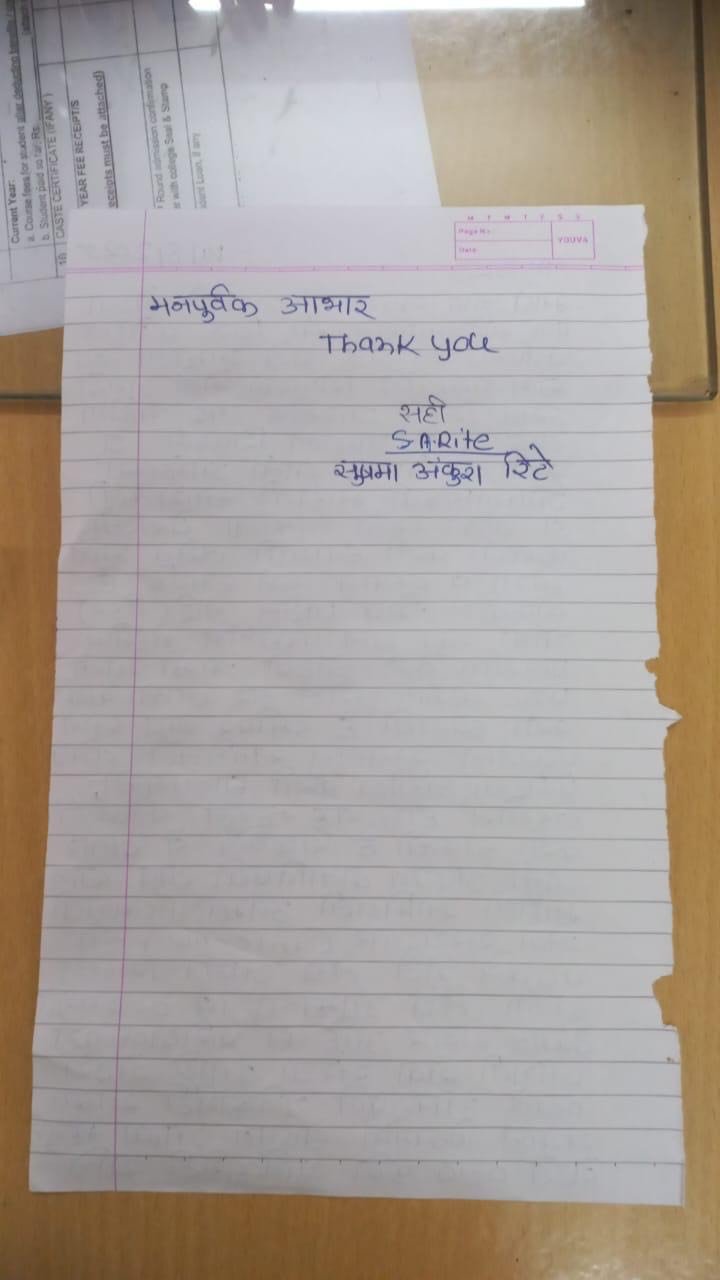 Current Year:
a. Course fees for student after deducting benefits
b. Student paid so far: Rs.
10
CASTE CERTIFICATE (IF ANY)
YEAR FEE RECEIPTS
receipts must be attached)
Round admission confirmation
with college Seal & Stamp
Loan, if any
M T W T F S S
Page No.:
Date:
YOUVA
मनपुर्वक आभार
Thank you
सही
S.A.Rite
सुषमा अंकुश रिटे